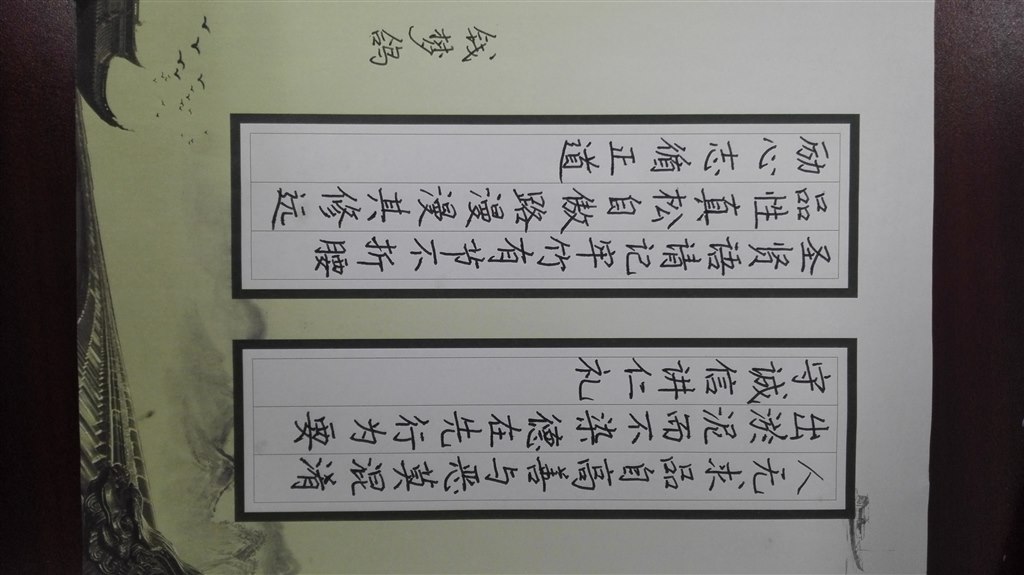 人无求品自高善与恶莫混淆
出淤泥而不染德在先行为要
守诚信讲仁礼
圣贤语请记牢竹有节不折腰
品性真松自傲路漫漫其修远
励心志循正道
钱梦鸽